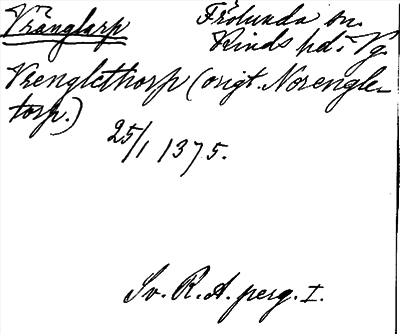 Vränglarp Frölunda sn.
Kinds hd. i Vg.
Vrenglethorp (origt. Norengle-
torp.)
25/1 1375.
Sv. R. A. perg. I.